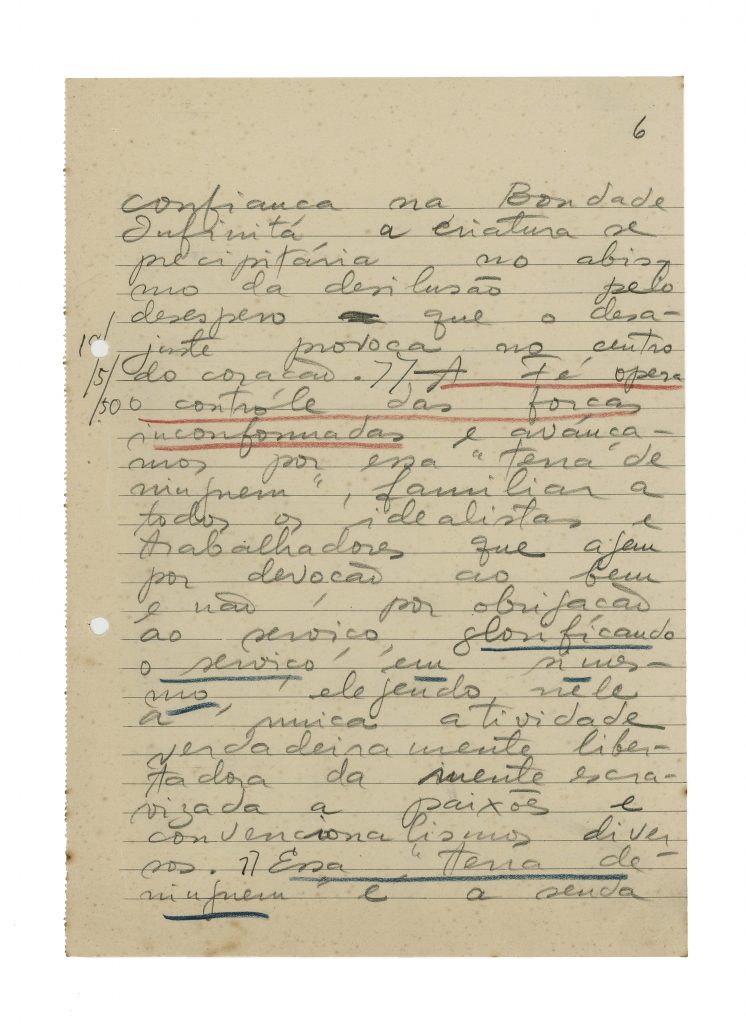 6
confianca na Bondade
Infinitá a criatura se
precipitária no abis-
mo da desilusão pelo
desespero que o desa-
juste provoca no centro
do coracão. 77 A Fé opera
o contrôle das forcas
inconformadas e avánca-
mos por essa "Terra de
ninguem", familiar a
todos os idealistas e
trabalhadores que ajem
por devocão ao bem
e não, por obrigacão
ao servico, glorificando
o servico em si mes-
mo, elejendo nele
a única atividade
verdadeiramente liber-
tadora da mente escra-
vizada a paixões e
convencionalismos diver
sos. 77 Essa "terra de-
ninguem" é a senda
/5/
/50